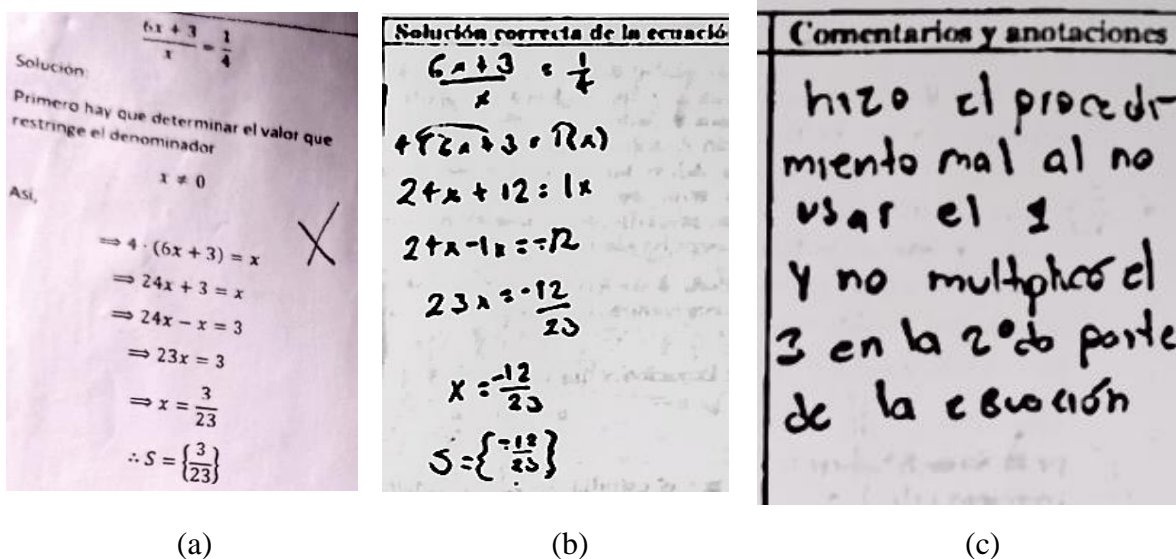 6x + 3 / x = 1/4
Solución:
Primero hay que determinar el valor que
restringe el denominador
x ≠ 0
Así,
⟹ 4 · (6x + 3) = x
⟹ 24x + 3 = x
⟹ 24x − x = 3
⟹ 23x = 3
⟹ x = 3/23
∴ S = {3/23}
(a)
Solución correcta de la ecuació
6x + 3 / x = 1/4
4(6x + 3 = 1(x)
24x + 12 = 1x
24x − 1x = −12
23x = −12/23
x = −12/23
S = {−12/23}
(b)
Comentarios y anotaciones
hizo el procedi-
miento mal al no
usar el 1
y no multiplicó el
3 en la 2°do parte
de la ecuación
(c)